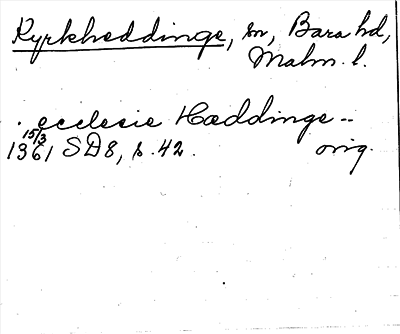 Kyrkheddinge, sn, Bara hd,
Malm. l.
. ecclesie Hæddinge --
15/3
1361 SD8, s. 42. orig.